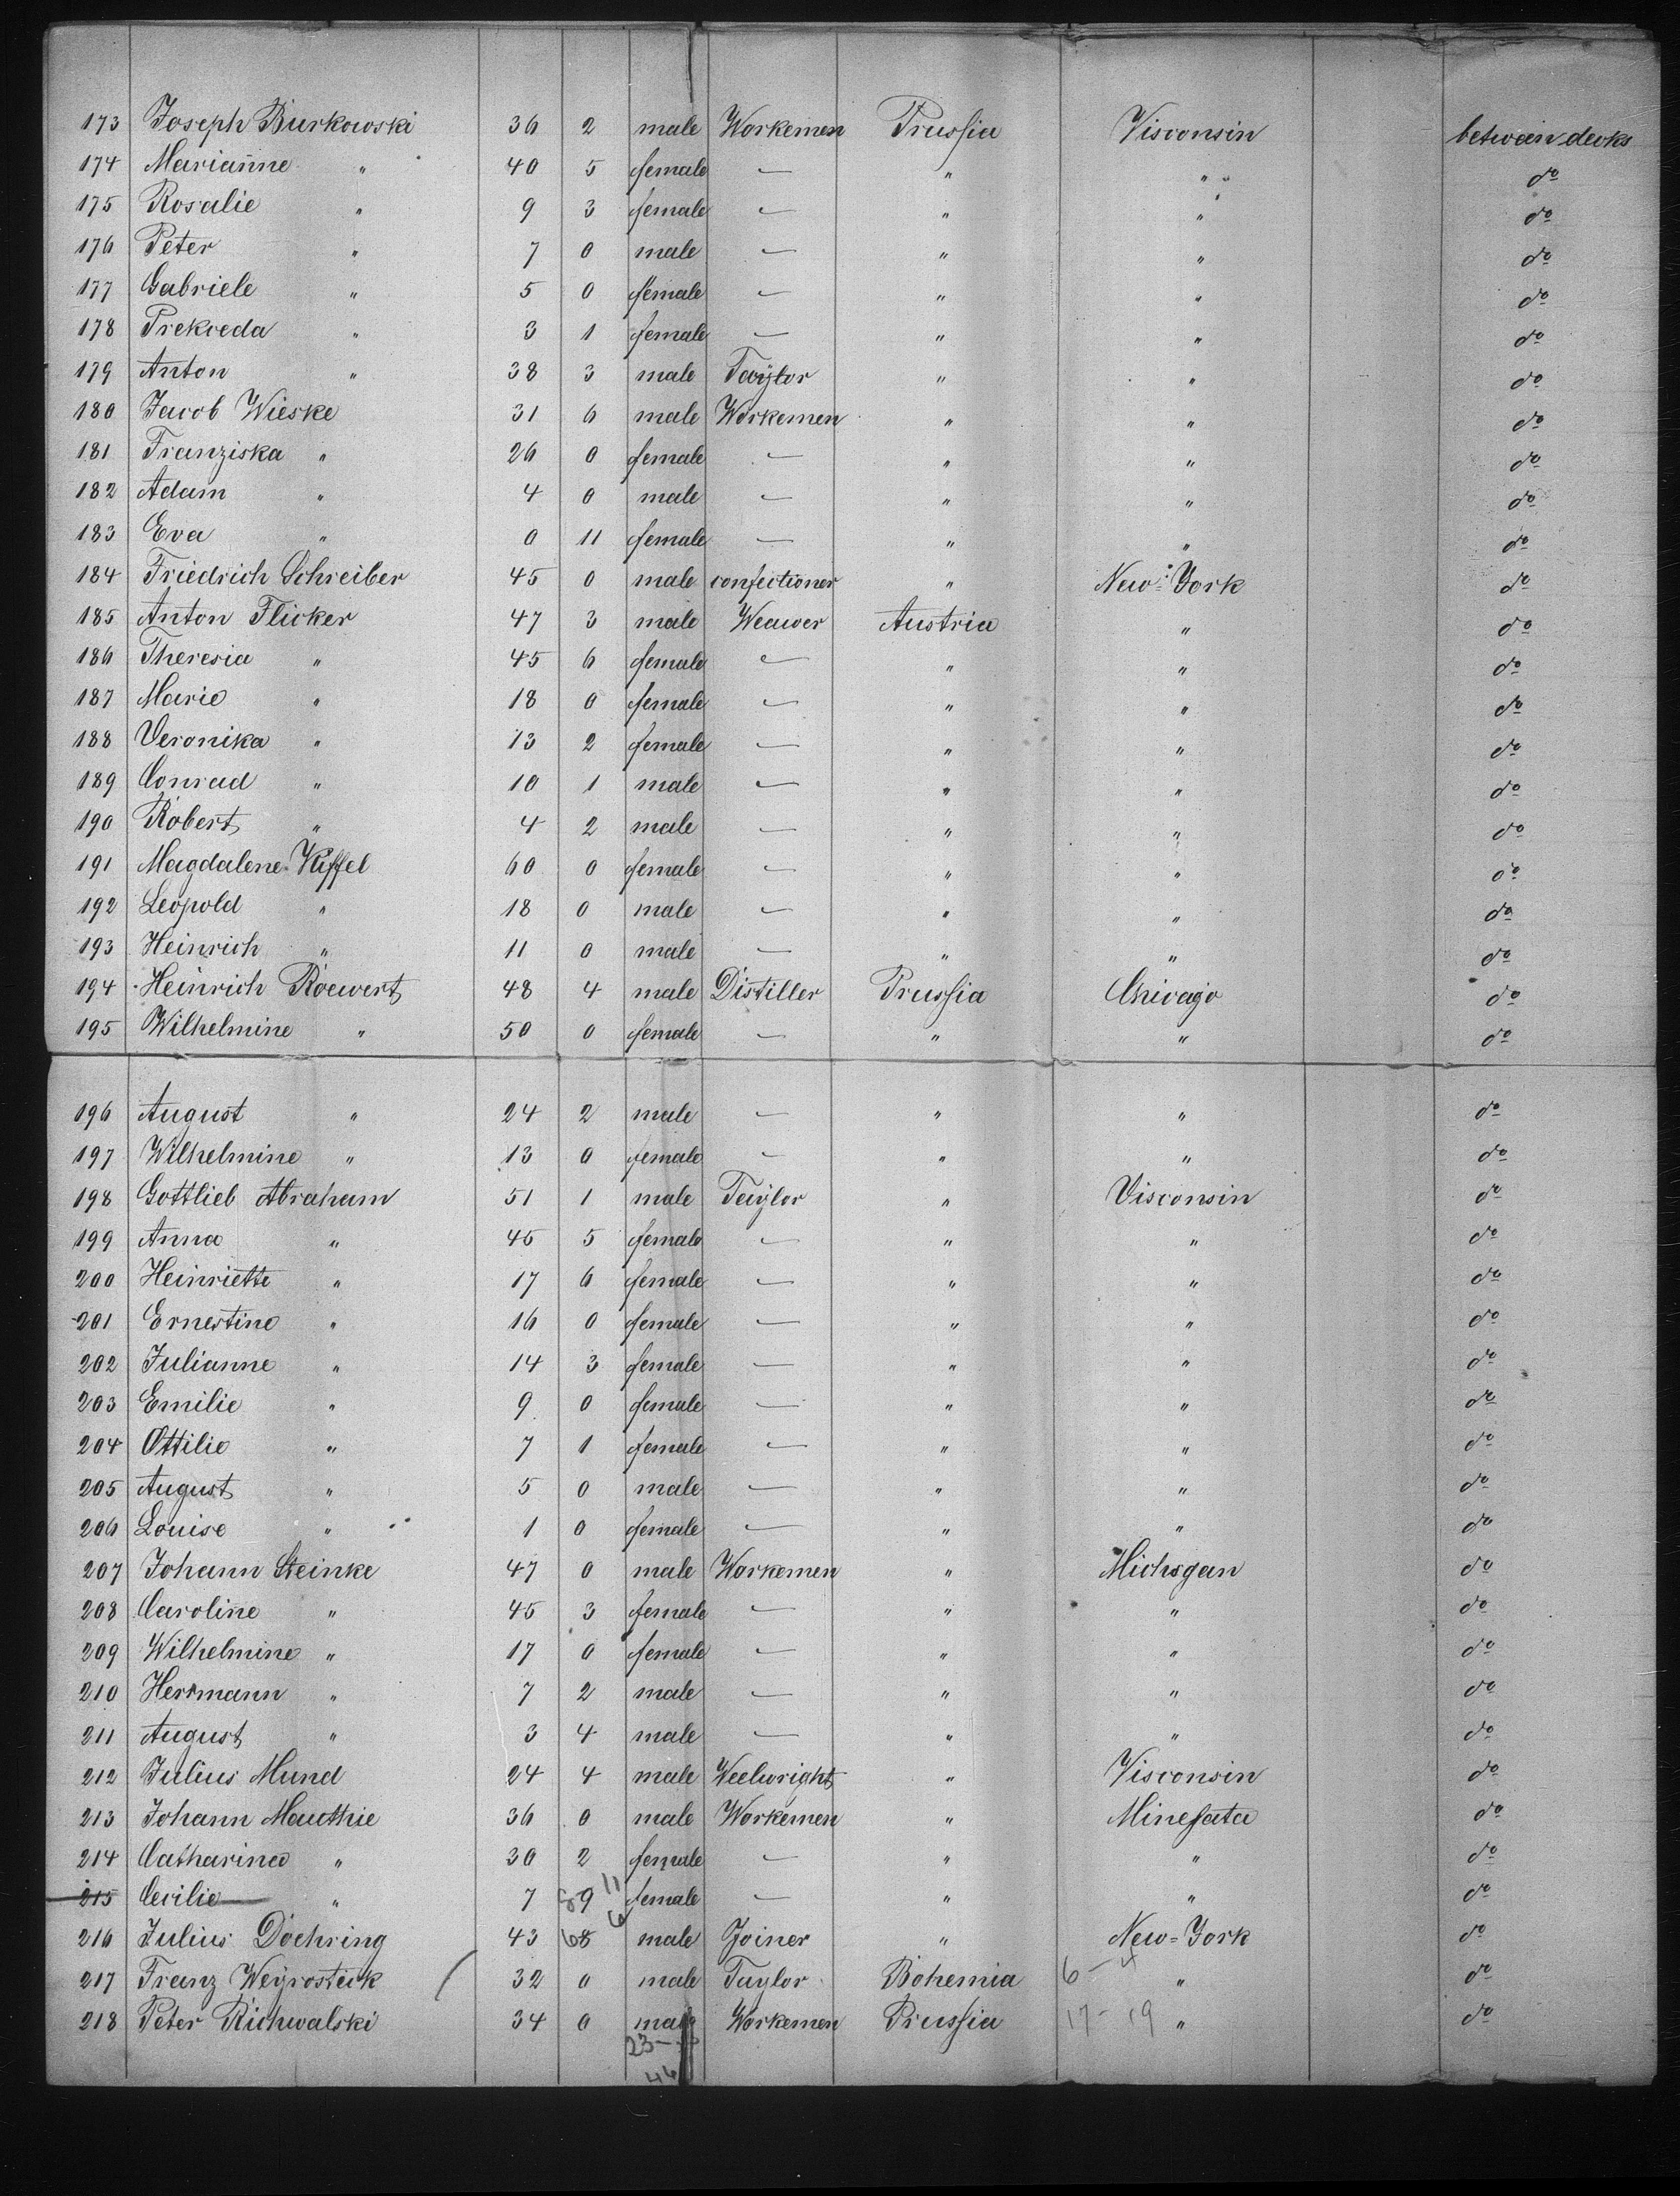 173 Joseph Burkowski 36 2 male Workemen Prussia Visconsin betwein decks
174 Marianne " 40 5 female — " " do
175 Rosalie " 9 3 female — " " do
176 Peter " 7 0 male — " " do
177 Gabriele " 5 0 female — " " do
178 Prekseda " 3 1 female — " " do
179 Anton " 38 3 male Taylor " " do
180 Jacob Wieske 31 6 male Workemen " " do
181 Franziska " 26 0 female — " " do
182 Adam " 4 0 male — " " do
183 Eva " 0 11 female — " " do
184 Friedrich Schreiber 45 0 male confectioner " New-York do
185 Anton Flicker 47 3 male Weawer Austria " do
186 Theresia " 45 6 female — " " do
187 Marie " 18 0 female — " " do
188 Veronika " 13 2 female — " " do
189 Conrad " 10 1 male — " " do
190 Robert " 4 2 male — " " do
191 Magdalene Kiffel 60 0 female — " " do
192 Leopold " 18 0 male — " " do
193 Heinrich " 11 0 male — " " do
194 Heinrich Roewert 48 4 male Distiller Prussia Chicago do
195 Wilhelmine " 50 0 female — " " do
196 August " 24 2 male — " " do
197 Wilhelmine " 13 0 female — " " do
198 Gottlieb Abraham 51 1 male Taylor " Visconsin do
199 Anna " 45 5 female — " " do
200 Heinriette " 17 6 female — " " do
201 Ernestine " 16 0 female — " " do
202 Julianne " 14 3 female — " " do
203 Emilie " 9 0 female — " " do
204 Ottilie " 7 1 female — " " do
205 August " 5 0 male — " " do
206 Louise " 1 0 female — " " do
207 Johann Steinke 47 0 male Workemen " Michigan do
208 Caroline " 45 3 female — " " do
209 Wilhelmine " 17 0 female — " " do
210 Herrmann " 7 2 male — " " do
211 August " 3 4 male — " " do
212 Julius Mund 24 4 male Weelwright " Visconsin do
213 Johann Mauthie 36 0 male Workemen " Minesata do
214 Catharina " 30 2 female — " " do
215 Cecilie " 7 9 11 female — " " do
216 Julius Doehring 43 8 6 male Joiner " New-York do
217 Franz Weyrosteck 32 0 male Taylor Bohemia 6-4 " do
218 Peter Richwalski 34 0 male Workemen Prussia 17-19 " do
23-
46